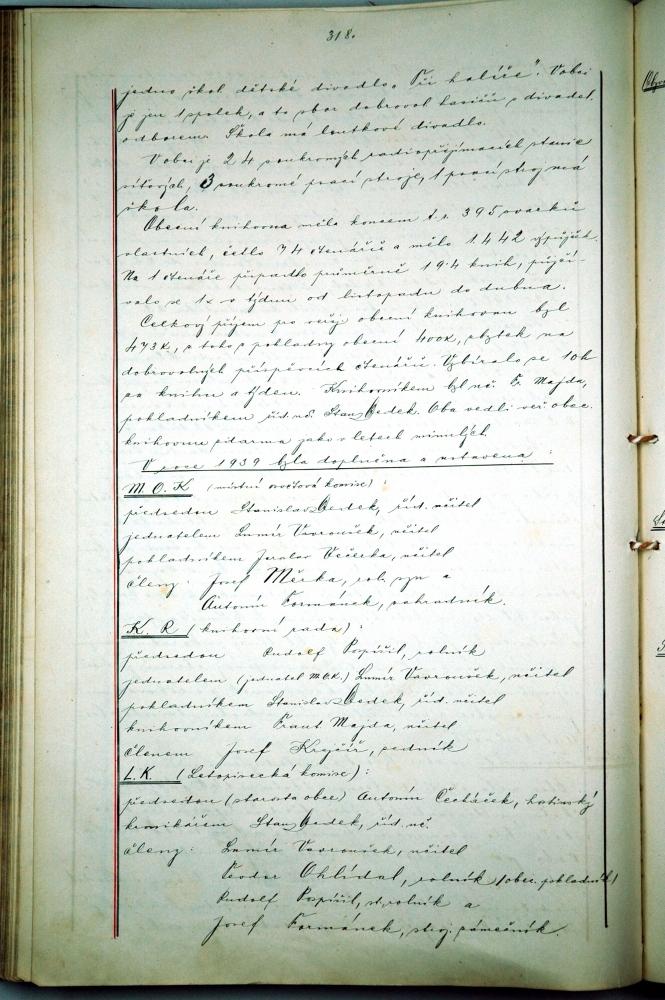 318.
jedno škol. dětské divadlo „Při kolíbce". V obci
je jen 1 spolek, a to sbor dobrovol. hasičů s divadel.
odborem. Škola má loutkové divadlo.
V obci je 24 soukromých radiopřijímacích stanic
síťových, 3 soukromé prací stroje, 1 prací stroj má
škola.
Obecní knihovna měla koncem t. r. 395 svazků
vlastních, četlo 74 čtenářů a mělo 1.442 výpůjček.
Na 1 čtenáře připadlo průměrně 19.4 knih, půjčo-
valo se 1x v týdnu od listopadu do dubna.
Celkový příjem pro veřej. obecní knihovnu byl
473 K, z toho z pokladny obecní 400 K, zbytek na
dobrovolných příspěvcích čtenářů. Vybíralo se 10 h
za knihu a týden. Knihovníkem byl uč. F. Majda,
pokladníkem říd. uč. Stan. Bedek. Oba vedli veř. obec.
knihovnu zdarma jako v letech minulých.
V roce 1939 byla doplněna a ustavena:
M. O. K. (místní osvětová komise):
předsedou Stanislav Bedek, říd. učitel
jednatelem Lumír Vavroušek, učitel
pokladníkem Jaroslav Večerka, učitel
členy: Josef Měrka, rol. syn a
Antonín Formánek, zahradník.
K. R. (knihovní rada):
předsedou Rudolf Pospíšil, rolník
jednatelem (jednatel M.O.K.) Lumír Vavroušek, učitel
pokladníkem Stanislav Bedek, říd. učitel
knihovníkem Frant. Majda, učitel
členem Josef Krejčíř, zedník
L. K. (Letopisecká komise):
předsedou (starosta obce) Antonín Čecháček, hostinský
kronikářem Stan. Bedek, říd. uč.
členy: Lumír Vavroušek, učitel
Teodor Ohlídal, rolník (obec. pokladník)
Rudolf Pospíšil, st., rolník a
Josef Formánek, stroj. zámečník.